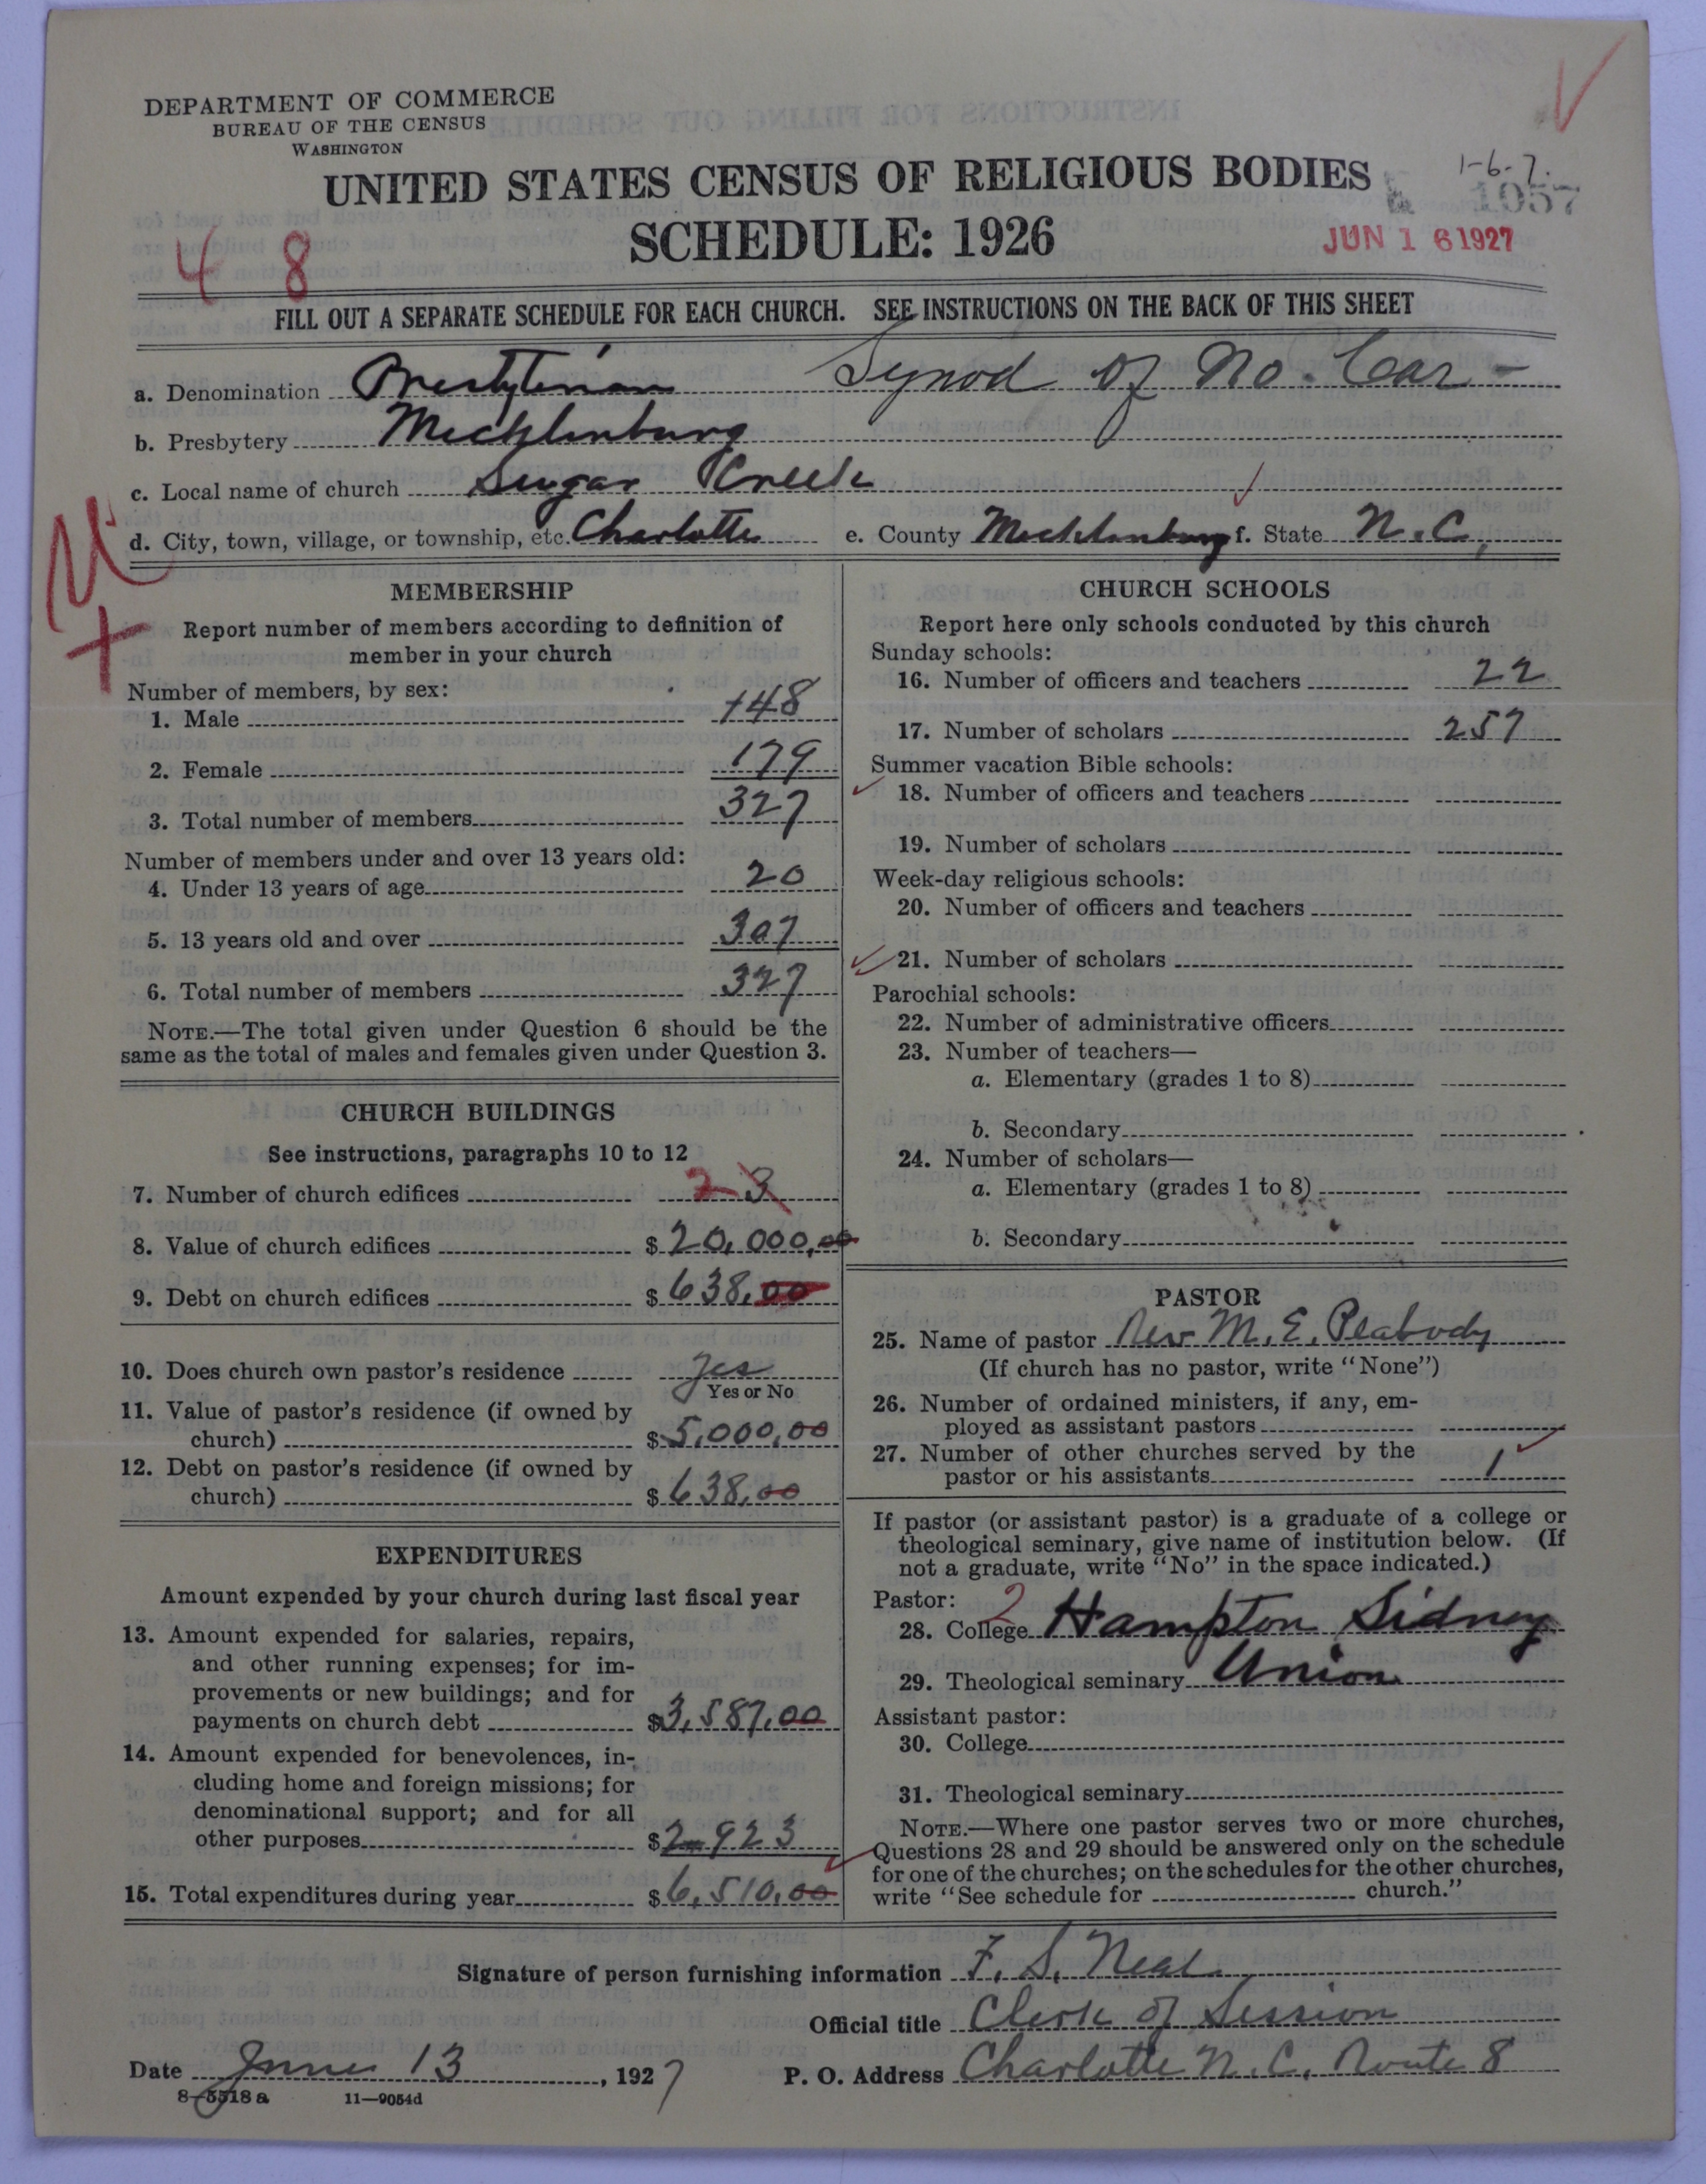 DEPARTMENT OF COMMERCE
BUREAU OF THE CENSUS
WASHINGTON
UNITED STATES CENSUS OF RELIGIOUS BODIES
1-6-7.
1057
SCHEDULE: 1926
JUN 16 1927
4 8
FILL OUT A SEPARATE SCHEDULE FOR EACH CHURCH. SEE INSTRUCTIONS ON THE BACK OF THIS SHEET
a. Denomination Presbyterian Synod of No. Car -
b. Presbytery Mecklenburg
c. Local name of church Sugar Creek
d. City, town, village, or township, etc. Charlotte e. County Mecklenburg f. State N.C.
MEMBERSHIP
Report number of members according to definition of
member in your church
Number of members, by sex:
1. Male 148
2. Female 179
3. Total number of members 327
Number of members under and over 13 years old:
4. Under 13 years of age 20
5. 13 years old and over 307
6. Total number of members 327
NOTE.—The total given under Question 6 should be the
same as the total of males and females given under Question 3.
CHURCH BUILDINGS
See instructions, paragraphs 10 to 12
7. Number of church edifices 2 3
8. Value of church edifices $ 20,000,00
9. Debt on church edifices $ 638,00
10. Does church own pastor's residence Yes
Yes or No
11. Value of pastor's residence (if owned by
church) $ 5,000,00
12. Debt on pastor's residence (if owned by
church) $ 638,00
EXPENDITURES
Amount expended by your church during last fiscal year
13. Amount expended for salaries, repairs,
and other running expenses; for im-
provements or new buildings; and for
payments on church debt $3,587,00
14. Amount expended for benevolences, in-
cluding home and foreign missions; for
denominational support; and for all
other purposes $2-923
15. Total expenditures during year $6,510,00
CHURCH SCHOOLS
Report here only schools conducted by this church
Sunday schools:
16. Number of officers and teachers 22
17. Number of scholars 257
Summer vacation Bible schools:
18. Number of officers and teachers
19. Number of scholars
Week-day religious schools:
20. Number of officers and teachers
21. Number of scholars
Parochial schools:
22. Number of administrative officers
23. Number of teachers—
a. Elementary (grades 1 to 8)
b. Secondary
24. Number of scholars—
a. Elementary (grades 1 to 8)
b. Secondary
PASTOR
25. Name of pastor Rev M. E. Peabody
(If church has no pastor, write "None")
26. Number of ordained ministers, if any, em-
ployed as assistant pastors
27. Number of other churches served by the
pastor or his assistants 1
If pastor (or assistant pastor) is a graduate of a college or
theological seminary, give name of institution below. (If
not a graduate, write "No" in the space indicated.)
Pastor: 2
28. College Hampton Sidney
29. Theological seminary Union
Assistant pastor:
30. College
31. Theological seminary
NOTE.—Where one pastor serves two or more churches,
Questions 28 and 29 should be answered only on the schedule
for one of the churches; on the schedules for the other churches,
write "See schedule for church."
Signature of person furnishing information F. S. Neal
Official title Clerk of Session
Date June 13, 1927 P. O. Address Charlotte N.C. Route 8
8-5518 a 11-9054d